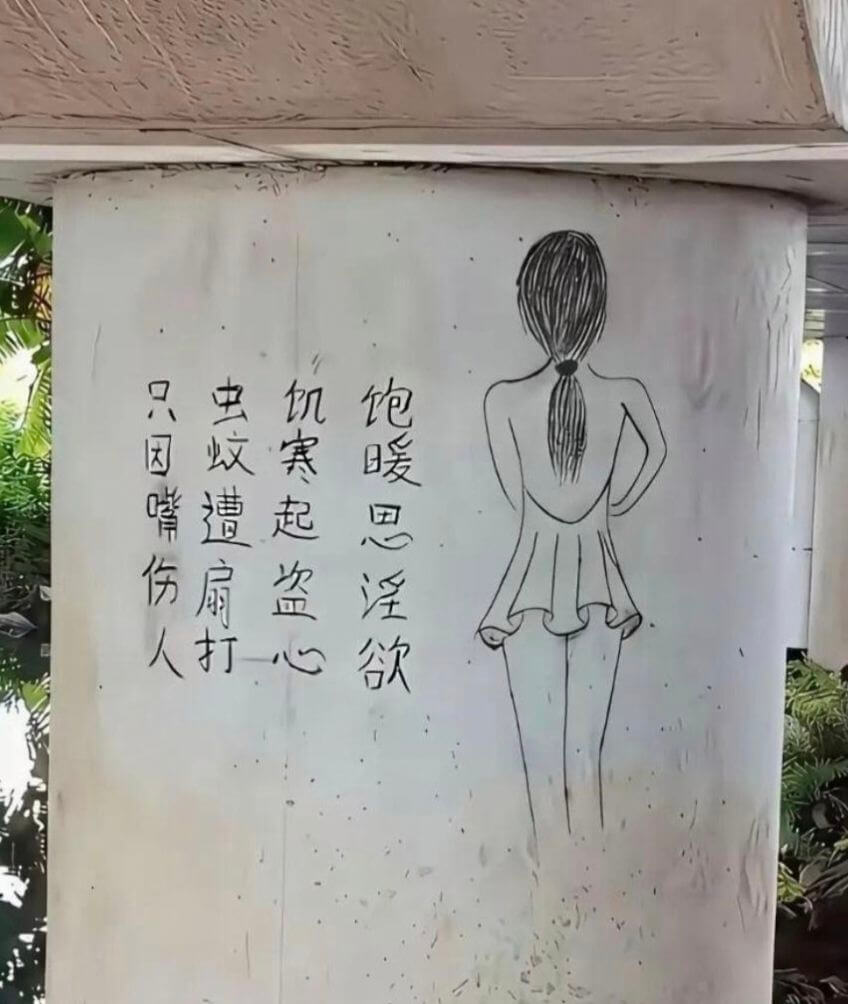 饱暖思淫欲
饥寒起盗心
虫蚊遭扇打
只因嘴伤人